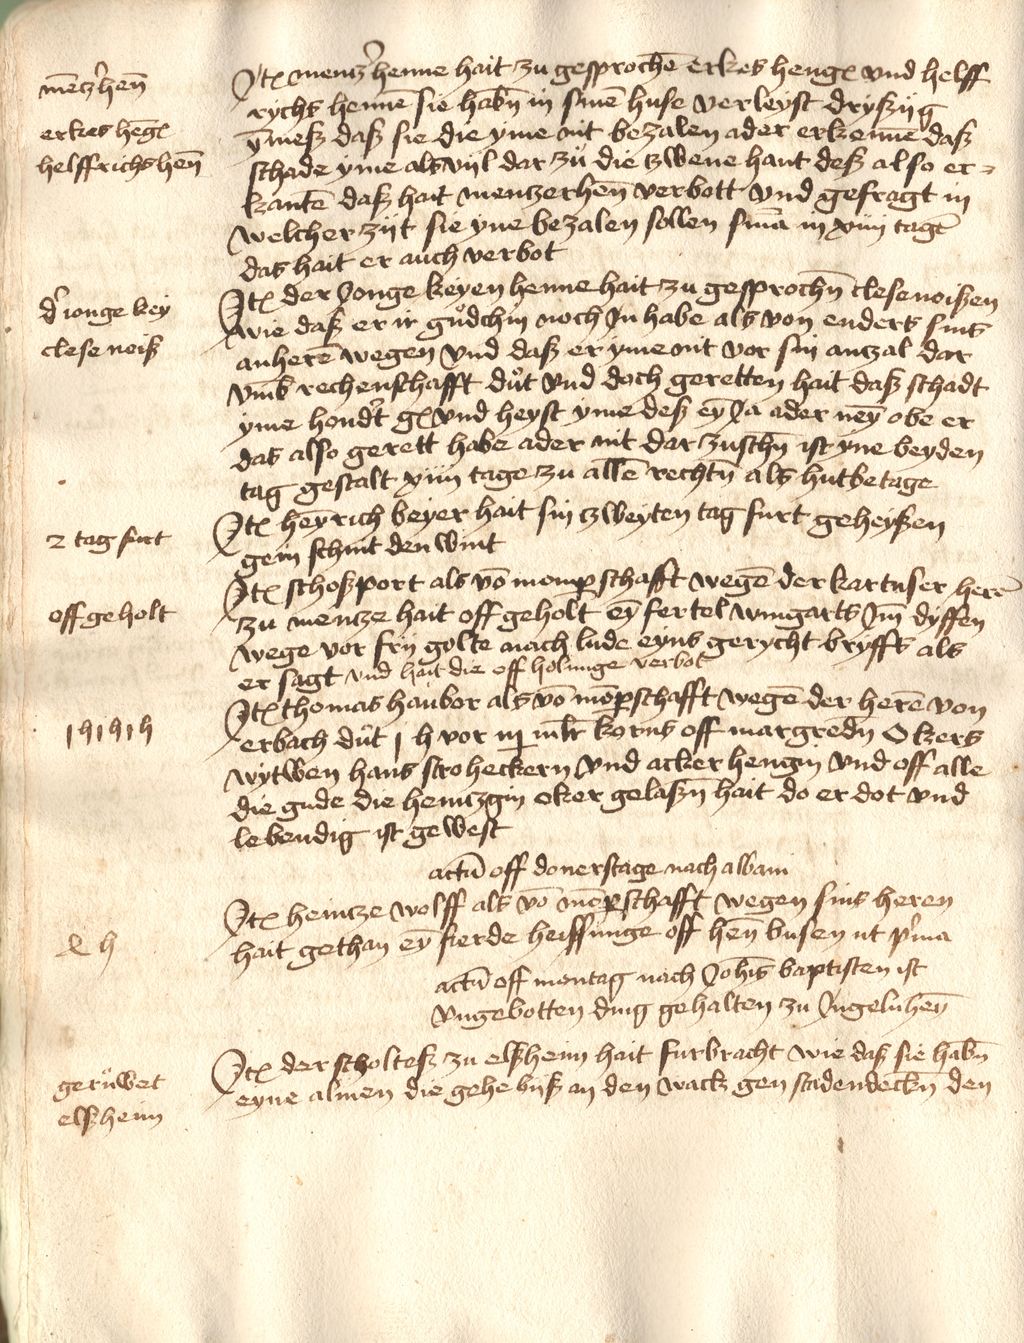 mentzerhen
Jt mentzerhenne hait zu gesprochen erkes henge vnd helff
rychs henne sie habn in sine huse verleyst dryszig
erkes heng
helffrichshen
ymesz dasz sie die yme nit bezalen ader erkenne dasz
schade yme alsvijl dar zu die zwene hant desz also er-
kanten dasz hait mentzerhen verbott vnd gefragt in
welcher zijt sie yne bezalen sollen sma in xiiij tagen
das hait er auch verbot
der jonge key
Jt der Jonge keyen henne hait zu gesprochn clese noiszen
clese neisz
wie dasz er ir gudchin noch Jn habe als von enders sins
anheren wegen vnd dasz er yme nit vor sin anczal dar
vmb rechenschafft dut vnd doch geretten hait dasz schadt
yme hondert gl vnd heyst yme desz ey Ja ader ney obe er
das also gerett habe ader nit dar zuschn ist yne beyden
tag gestalt xiiij tage zu allen rechtn als hutbetage
2 tag furt
Jt heyrich beyer hait sin zweyten tag furt geheyszen
gein schnit den wint
Jt schoszport als vo momperschafft wegen der kartuser heren
off geholt
zu mentze hait off geholt ey fertel wingarts Jm dyffen
wege vor frij golte nach lude eyns gerycht bryffs als
er sagt vnd hait die off holunge verbot
Jt thomas haubor als vo momperschafft wegen der heren von
1 h 1 h 1 h
erbach dut 1 h vor iij mlr korns off margredn Okers
wytwen hans stroheckern vnd acker hengin vnd off alle
die gude die hentzgin oker gelaszn hait do er dot vnd
lebendig ist gewest
actu off donerstage nach albani
Jt heintze wolff als vo momperschafft wegen sins heren
4 h
hait gethan ey fierde heiffunge off hen busen ut prima
actu off montag nach Johis baptisten ist
vngebotten ding gehalten zu Jngeluhen
Jt der scholtesz zu elszheim hait furbracht wie dasz sie habn
geruwet
elszheim
eyne almen die gehe bisz an den wack gen stadendeckn den